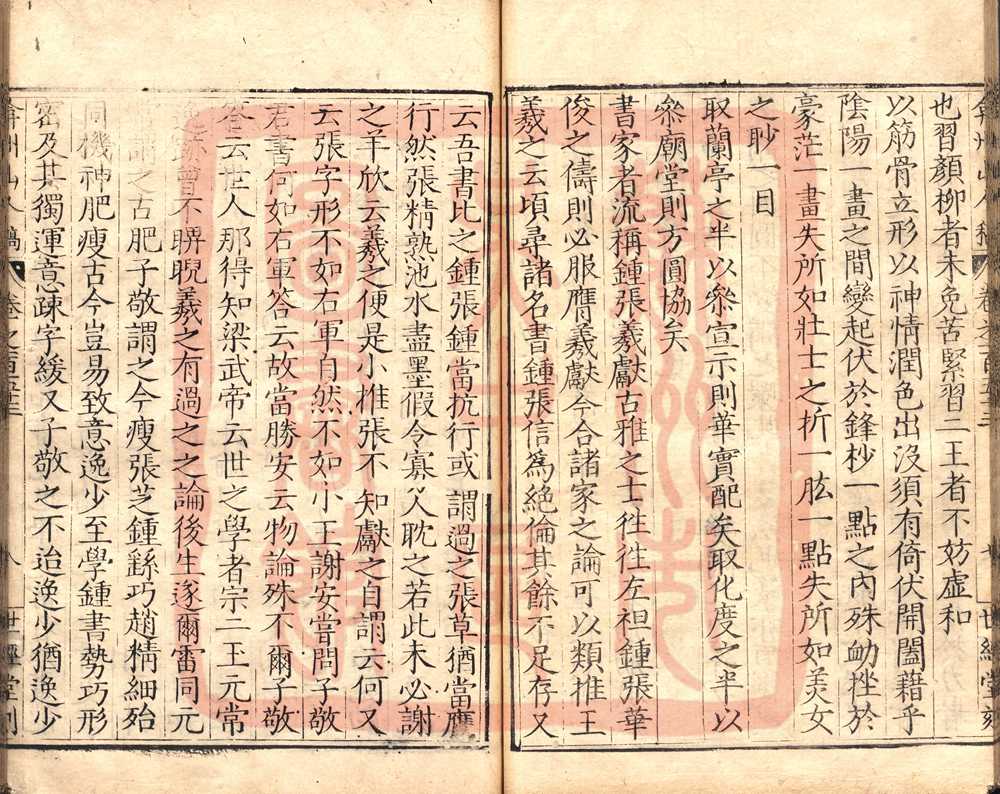 也習顏柳者未免苦緊習二王者不妨虛和
以筋骨立形以神情潤色出沒須有倚伏開闔藉乎
陰陽一畫之間變起伏於鋒杪一點之內殊衂挫於
豪茫一畫失所如壯士之折一肱一點失所如美女
之眇一目
取蘭亭之半以叅宣示則華實配矣取化度之半以
叅廟堂則方圓協矣
書家者流稱鍾張羲獻古雅之士徃徃左袒鍾張華
俊之儔則必服膺羲獻今合諸家之論可以類推王
羲之云頃尋諸名書鍾張信爲絶倫其餘不足存又
云吾書比之鍾張鍾當抗行或謂過之張草猶當鴈
行然張精熟池水盡墨假令寡人耽之若此未必謝
之羊欣云羲之便是小推張不知獻之自謂云何又
云張字形不如右軍自然不如小王謝安嘗問子敬
君書何如右軍答云故當勝安云物論殊不爾子敬
答云世人那得知梁武帝云世之學者宗二王元常
逸跡曾不睥睨羲之有過之之論後生遂爾雷同元
常謂之古肥子敬謂之今瘦張芝鍾繇巧趣精細殆
同機神肥瘦古今豈易致意逸少至學鍾書勢巧形
密及其獨運意疎字緩又子敬之不迨逸少猶逸少
弇州山人稿 卷之一百五十三 八 世經堂刻